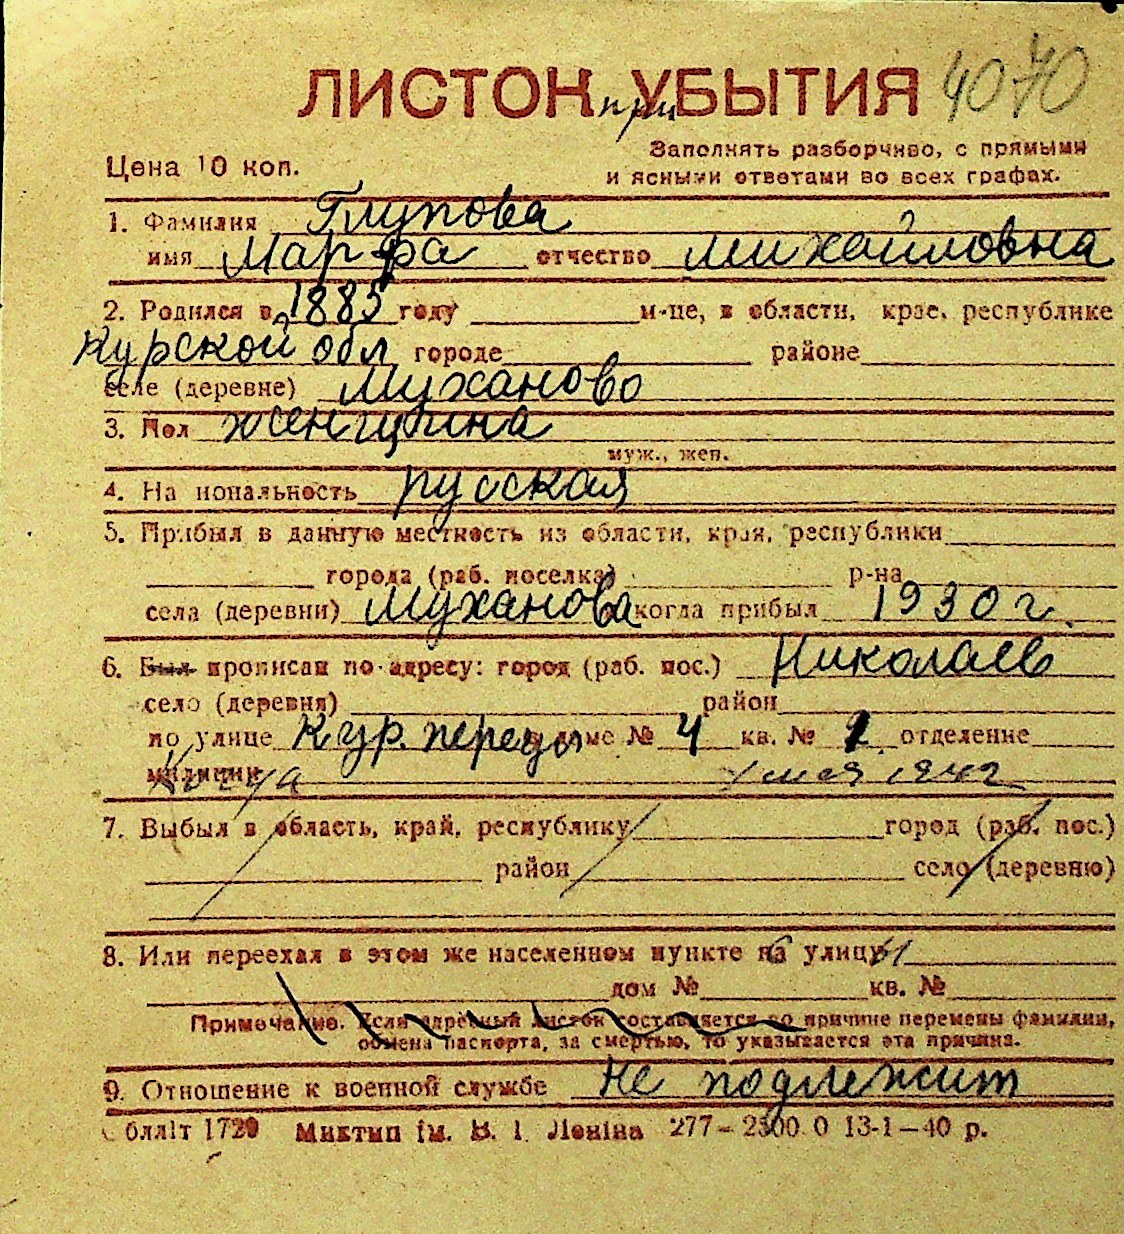 ЛИСТОК при УБЫТИЯ 4070
Цена 10 коп.
Заполнять разборчиво, с прямыми
и ясными ответами во всех графах.
1. Фамилия Глупова
имя Марфа отчество Михайловна
2. Родился в 1885 году м-це, в области, крае, республике
Курской обл городе районе
селе (деревне) Муханово
3. Пол женщина
муж., жен.
4. Национальность русская
5. Прибыл в данную местность из области, края, республики
города (раб. поселка) р-на
села (деревни) Муханова когда прибыл 1930 г.
6. Был прописан по адресу: город (раб. пос.) Николаев
село (деревня) район
по улице Кур. переул доме № 4 кв. № 1 отделение
милиции 1 мая 1942
7. Выбыл в область, край, республику город (раб. пос.)
район село (деревню)
8. Или переехал в этом же населенном пункте на улицу
дом № кв. №
Примечание. Если адресный листок составляется по причине перемены фамилии,
обмена паспорта, за смертью, то указывается эта причина.
9. Отношение к военной службе не подлежит
Облліт 1720 Миктип ім. В. І. Леніна 277—2500.0 13-1—40 р.